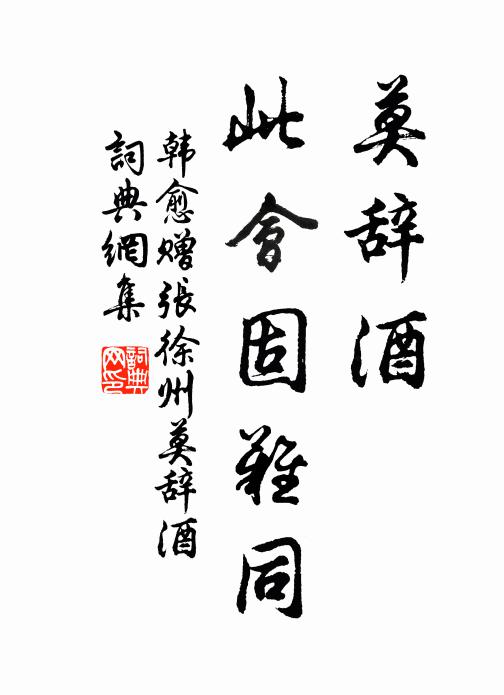 莫辞酒
此會固難同
韩愈赠張徐州莫辞酒
詞典網集
詞典网印